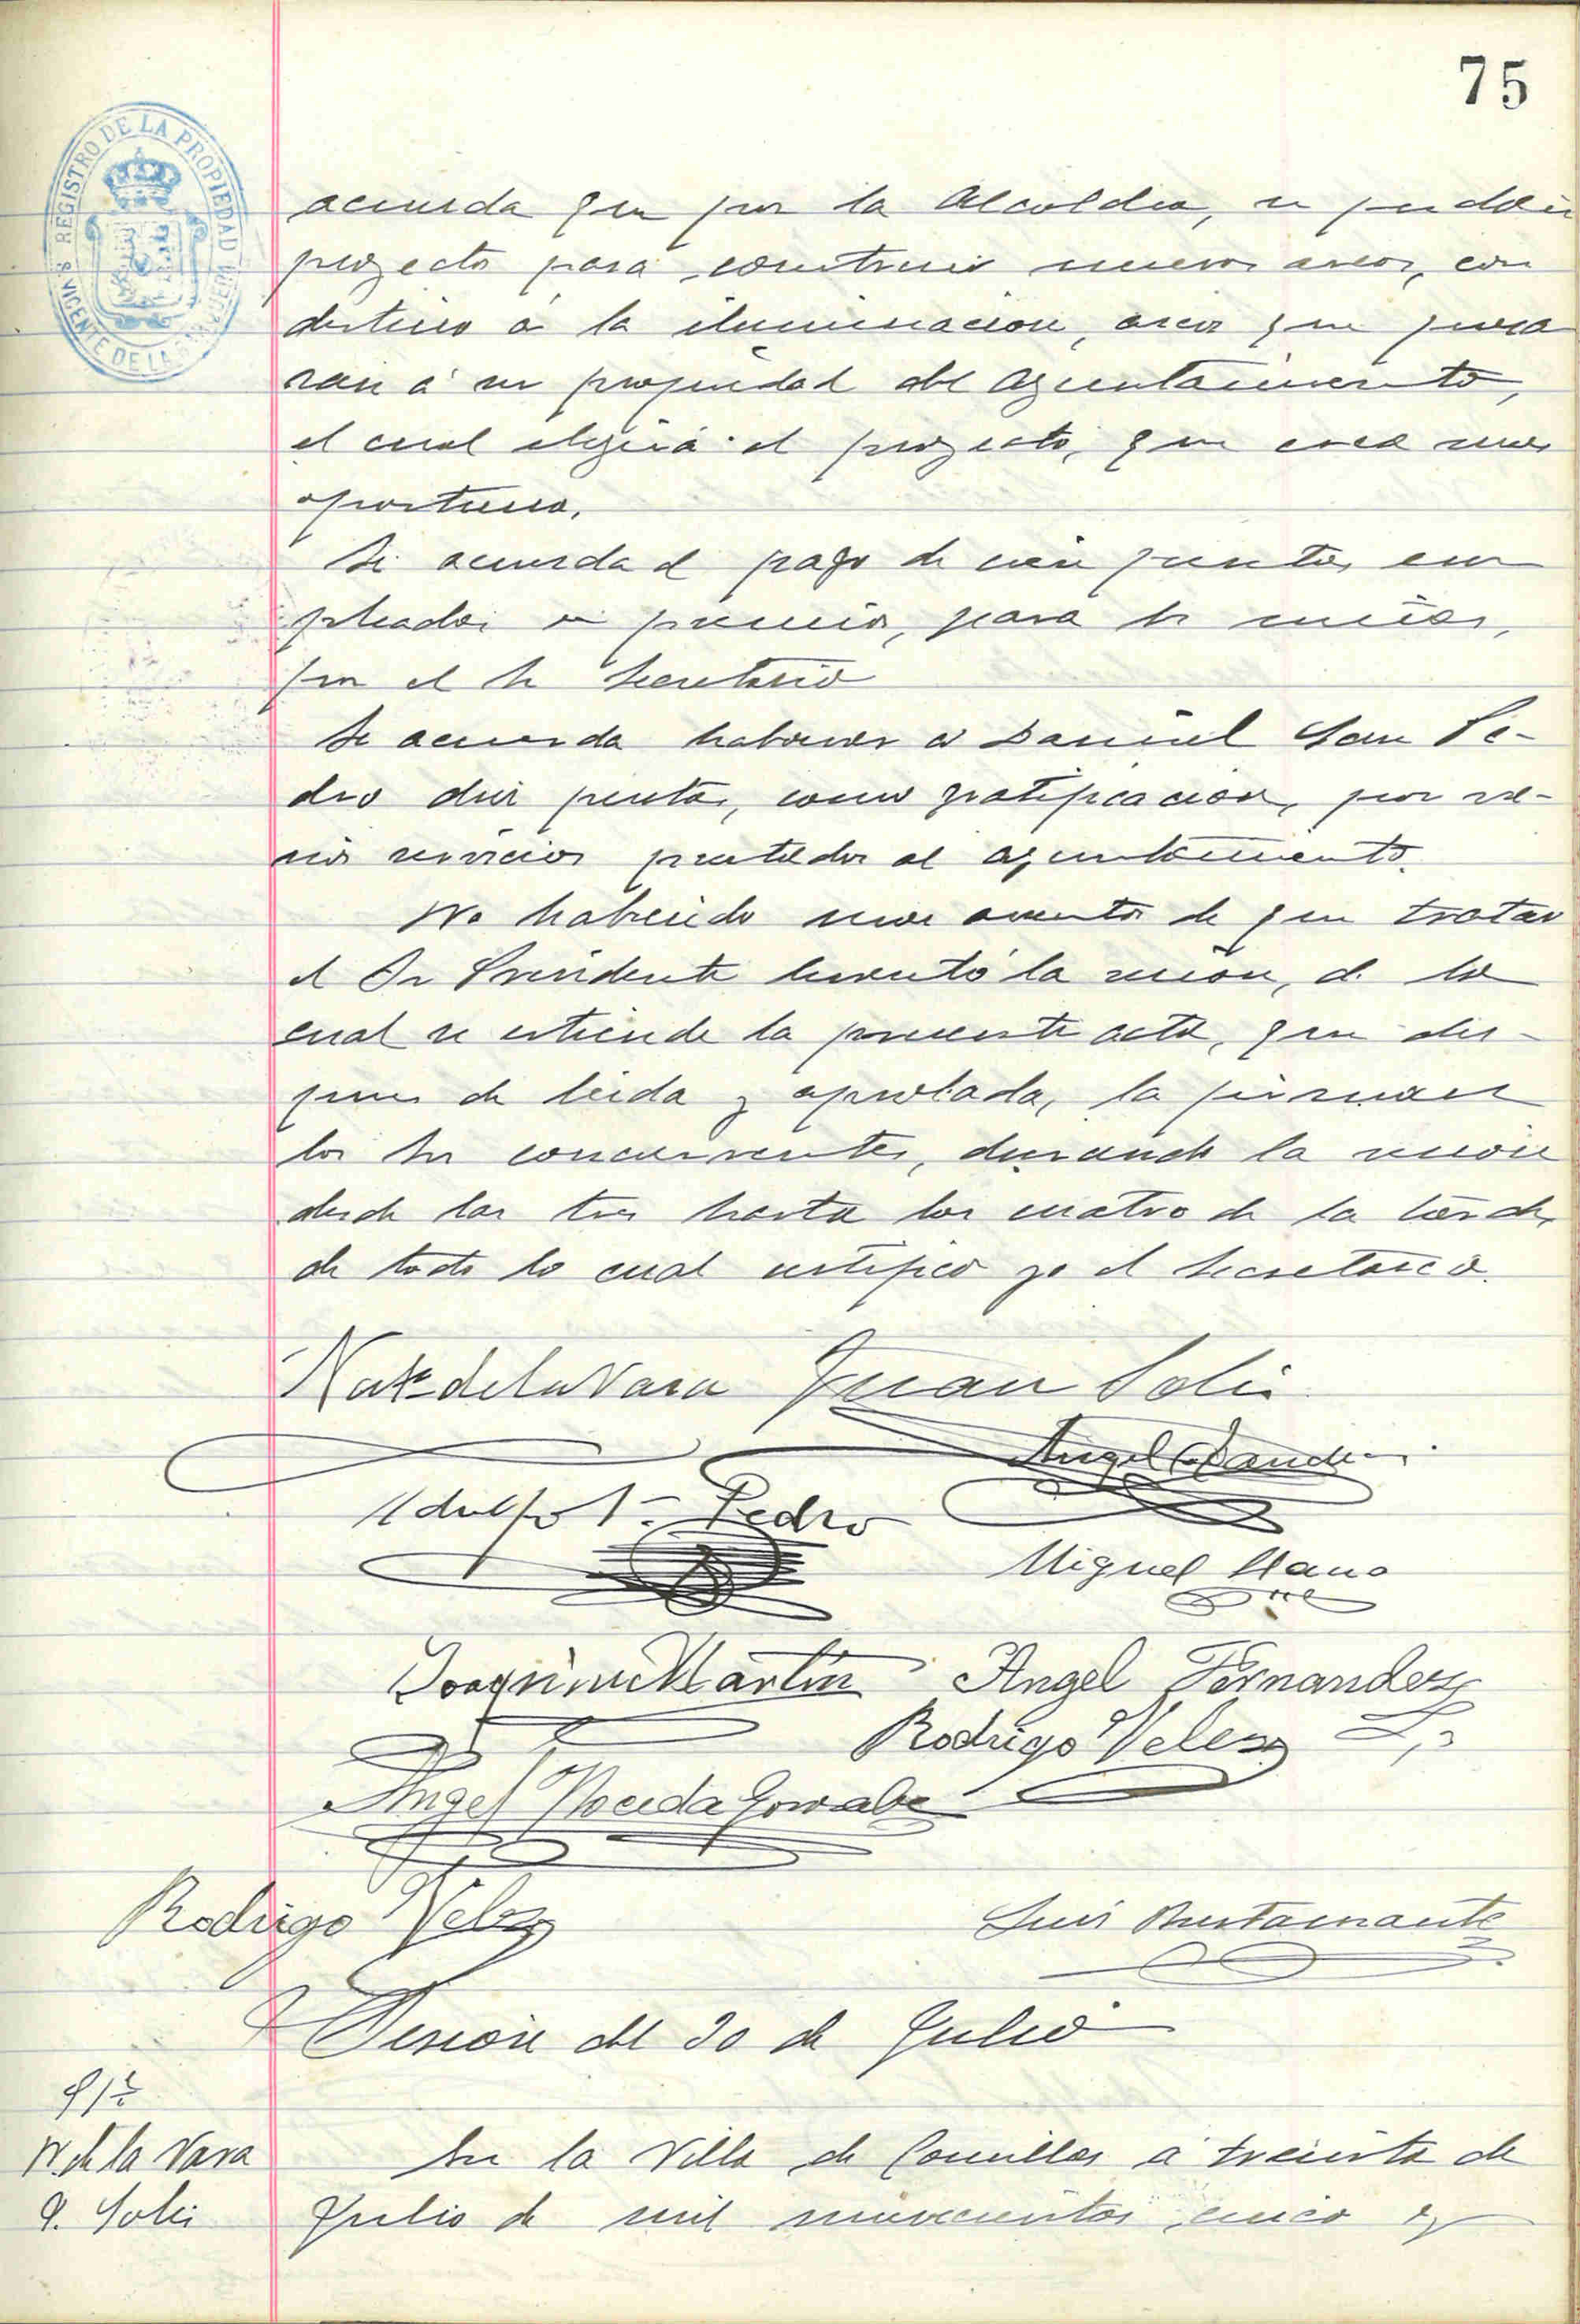 75
REGISTRO DE LA PROPIEDAD
S. VICENTE DE LA
acuerda que por la Alcaldia, se pidan
proyecto para construir nuevos arcos, con
destino á la iluminacion, arcos que pasa
ran á ser propiedad del Ayuntamiento,
el cual elegirá el proyecto, que crea mas
oportuno.
Se acuerda el pago de cien pesetas em
pleadas en premios, para los niños,
por el Sr Secretario
Se acuerda habonar a Daniel San Pe-
dro diez pesetas, como gratificacion, por va-
rios servicios prestados al ayuntamiento.
No habiendo mas asuntos de que tratar
el Sr Presidente levantó la sesion, de la
cual se extiende la presente acta, que des-
pues de leida y aprobada, la firman
los Sres concurrentes, durando la sesion
desde las tres hasta las cuatro de la tarde,
de todo lo cual certifico yo el Secretario.
de la Vara Juan Solis
Angel Sanchez
Adolfo Sn Pedro
Miguel Llano
Joaquin Martin Angel Fernandez
Rodrigo Velez
Angel Noceda Gonzalez
Rodrigo Velez
Luis Bustamante
Sesion del 30 de Julio
N. de la Vara
En la Villa de Comillas á treinta de
J. Solis
Julio de mil novecientos cinco y